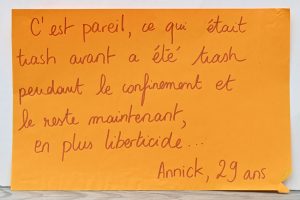 C'est pareil, ce qui était
trash avant a été trash
pendant le confinement et
le reste maintenant,
en plus liberticide...
Annick, 29 ans